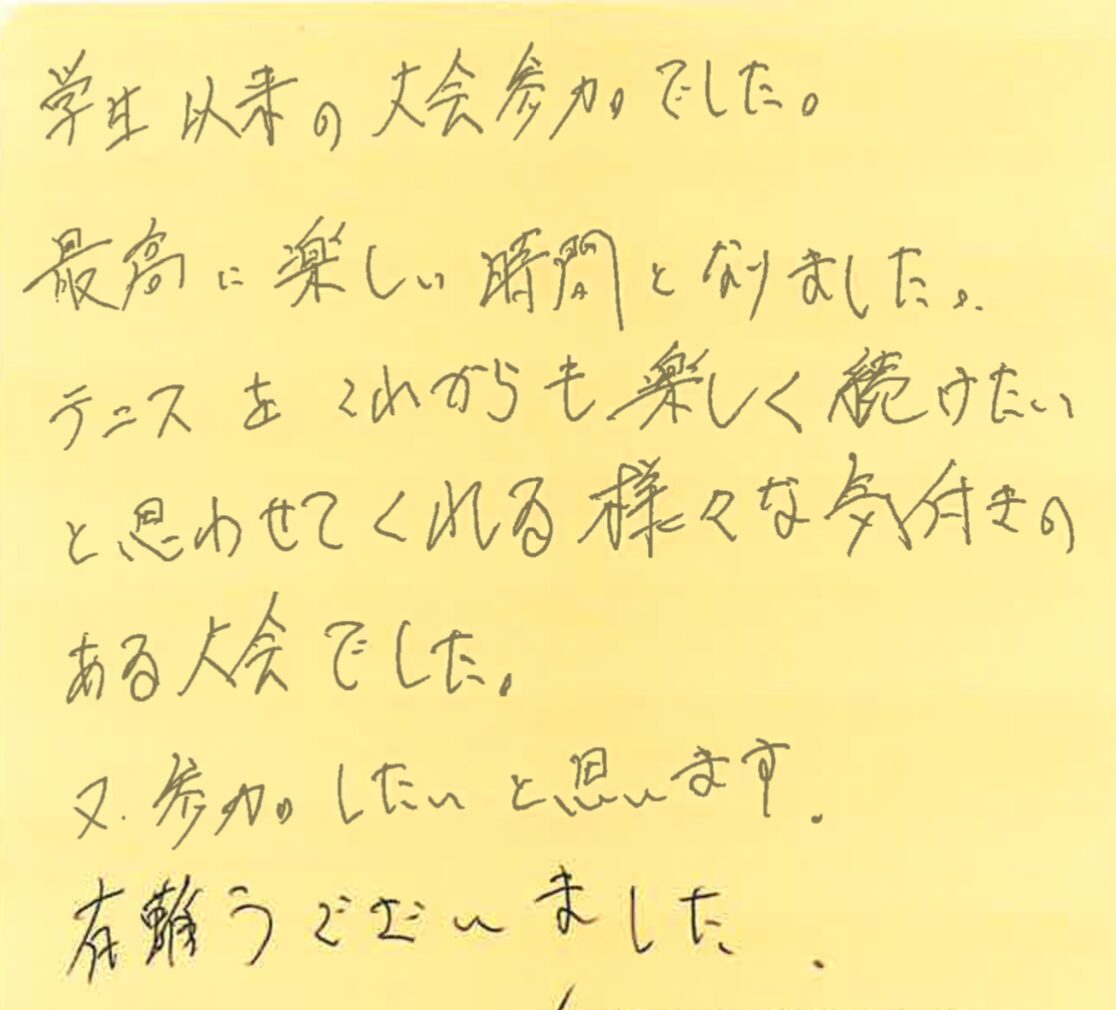 学生以来の大会参加でした。
最高に楽しい時間となりました。
テニスをこれからも楽しく続けたい
と思わせてくれる様々な気付きの
ある大会でした。
又、参加したいと思います.
有難うございました.